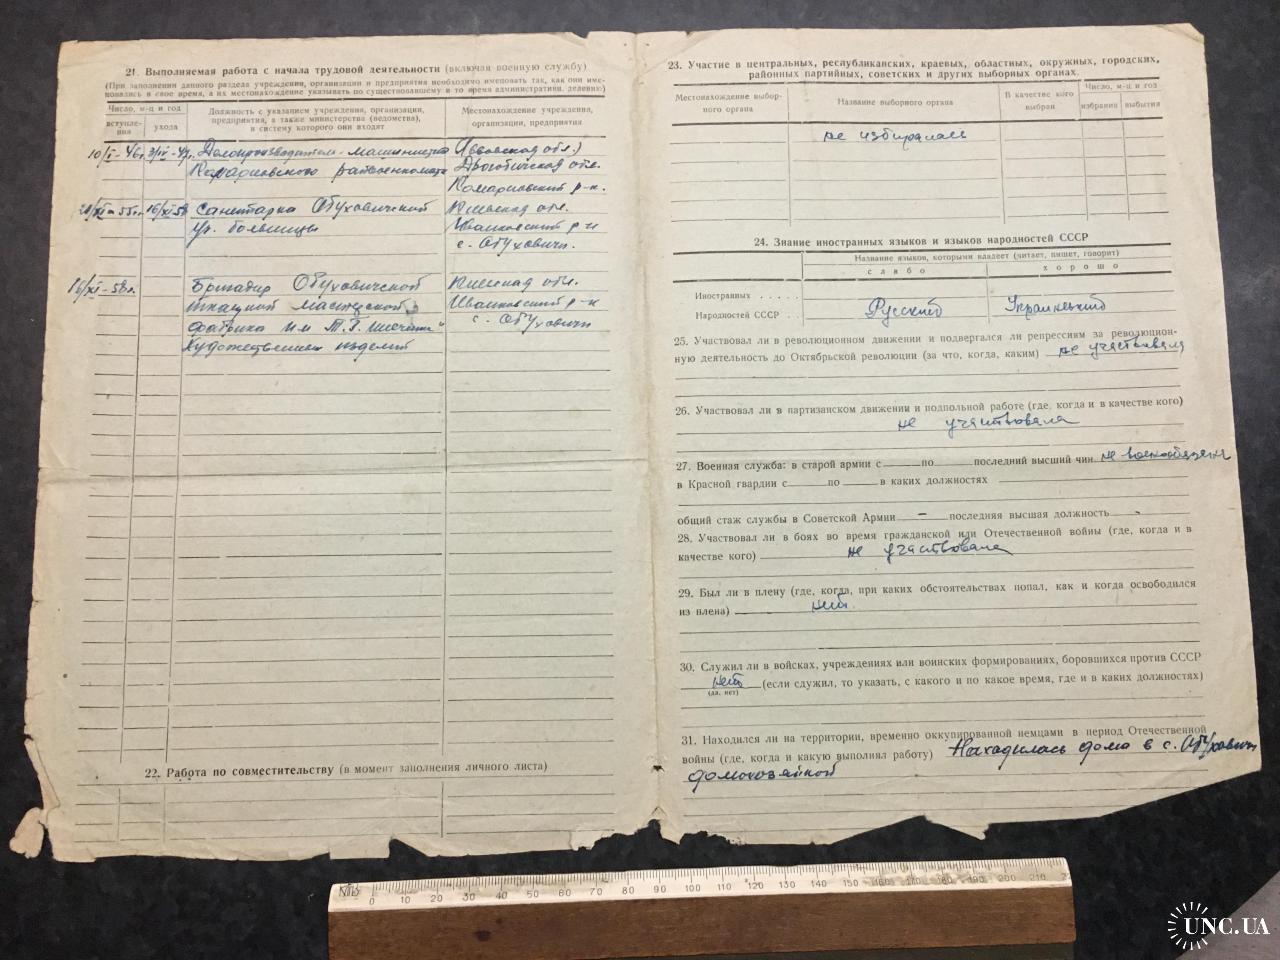 21. Выполняемая работа с начала трудовой деятельности (включая военную службу)
(При заполнении данного раздела учреждения, организации и предприятия необходимо именовать так, как они име-
новались в свое время, а их местонахождение указывать по существовавшему в то время административн. делению)
Число, м-ц и год
вступле-
ния
ухода
Должность с указанием учреждения, организации,
предприятия, а также министерства (ведомства),
в систему которого они входят
Местонахождение учреждения,
организации, предприятия
10/I-46г. 3/IV-47г. Делопроизводитель-машинистка Львовская обл.)
райвоенкомата Дрогобичская обл.
Комарновский р-н.
21/XI-55г. 16/XI 58 Санитарка Обуховичской Киевская обл.
уч. больницы Иванковский р-н
с. Обуховичи.
16/XI-58г. Бригадир Обуховичской Киевская обл.
ткацкой мастерской Иванковский р-н
фабрика им Т.Г. Шевченка" с. Обуховичи
Художественных изделий
22. Работа по совместительству (в момент заполнения личного листа)
23. Участие в центральных, республиканских, краевых, областных, окружных, городских,
районных партийных, советских и других выборных органах.
Местонахождение выбор-
ного органа
Название выборного органа
В качестве кого
выбран
Число, м-ц и год
избрания
выбытия
не избиралась
24. Знание иностранных языков и языков народностей СССР
Название языков, которыми владеет (читает, пишет, говорит)
слабо
хорошо
Иностранных . . . . .
Народностей СССР . . Русский Украинский
25. Участвовал ли в революционном движении и подвергался ли репрессиям за революцион-
ную деятельность до Октябрьской революции (за что, когда, каким) не участвовала
26. Участвовал ли в партизанском движении и подпольной работе (где, когда и в качестве кого)
не участвовала
27. Военная служба: в старой армии с по последний высший чин не военнообязана
в Красной гвардии с по в каких должностях
общий стаж службы в Советской Армии – последняя высшая должность -
28. Участвовал ли в боях во время гражданской или Отечественной войны (где, когда и в
качестве кого) не участвовала
29. Был ли в плену (где, когда, при каких обстоятельствах попал, как и когда освободился
из плена) нет.
30. Служил ли в войсках, учреждениях или воинских формированиях, боровшихся против СССР
нет (если служил, то указать, с какого и по какое время, где и в каких должностях)
(да, нет)
31. Находился ли на территории, временно оккупированной немцами в период Отечественной
войны (где, когда и какую выполнял работу) Находилась дома в с. Обуховичи
домохозяйкой
0 10 20 30 40 50 60 70 80 90 100 110 120 130 140 150 160 170 180 190 200 210
UNC.UA